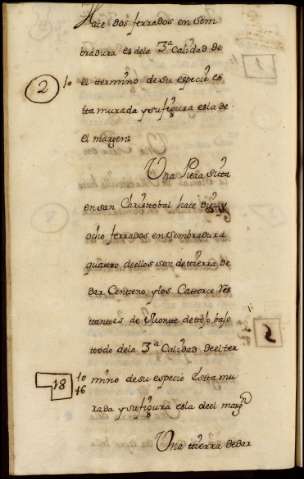 Hace dos ferrados en sem
bradura es dela 3ª Calidad de
2 10 el termino de su especie es
tta murada y su figura es la de
el margen
Una Pieza sitta
en san Christobal hace diez y
ocho ferrados en sembradura
quattro de ellos son de tierra de
dar Centeno y los Catorce res
ttantes de Monte de tojo bajo
todo dela 3ª Calidad de el ter
18 10 16 mino de su especie Estta mu
rada y su figura es la de el margn
Una tierra de dar